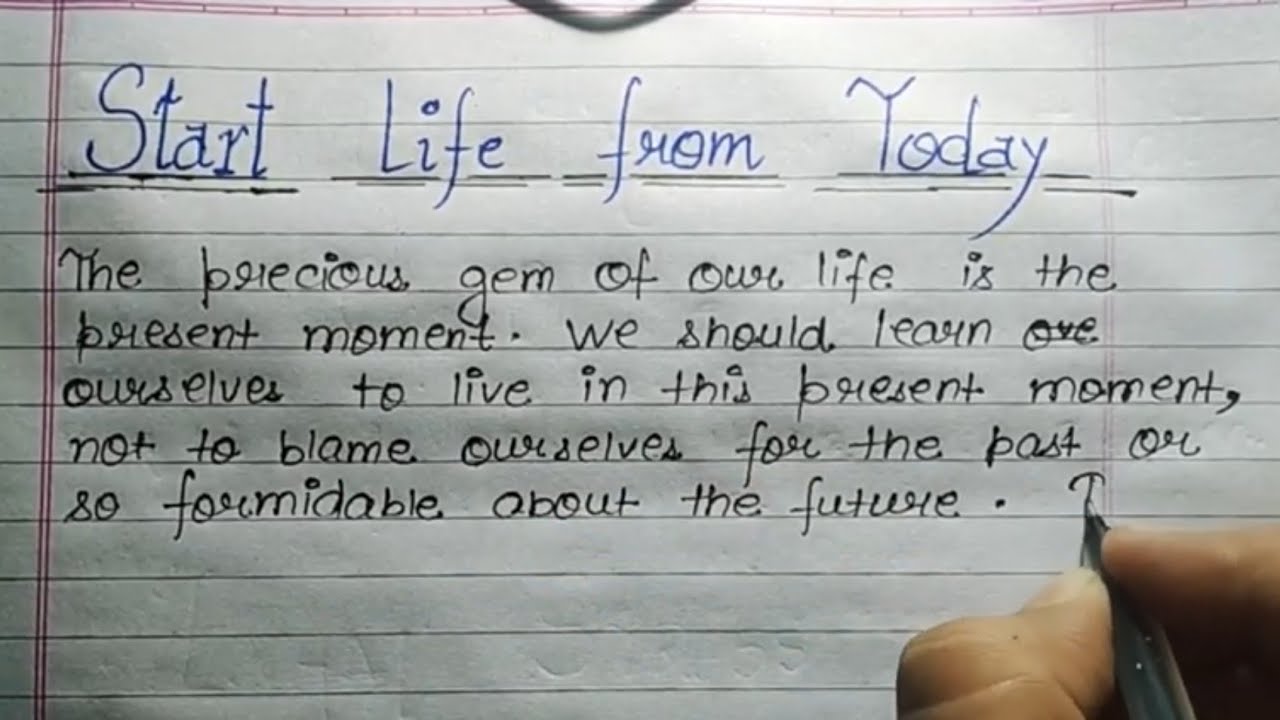 Start Life from Today
The precious gem of our life is the
present moment. We should learn ove
ourselves to live in this present moment,
not to blame ourselves for the past or
so formidable about the future. T